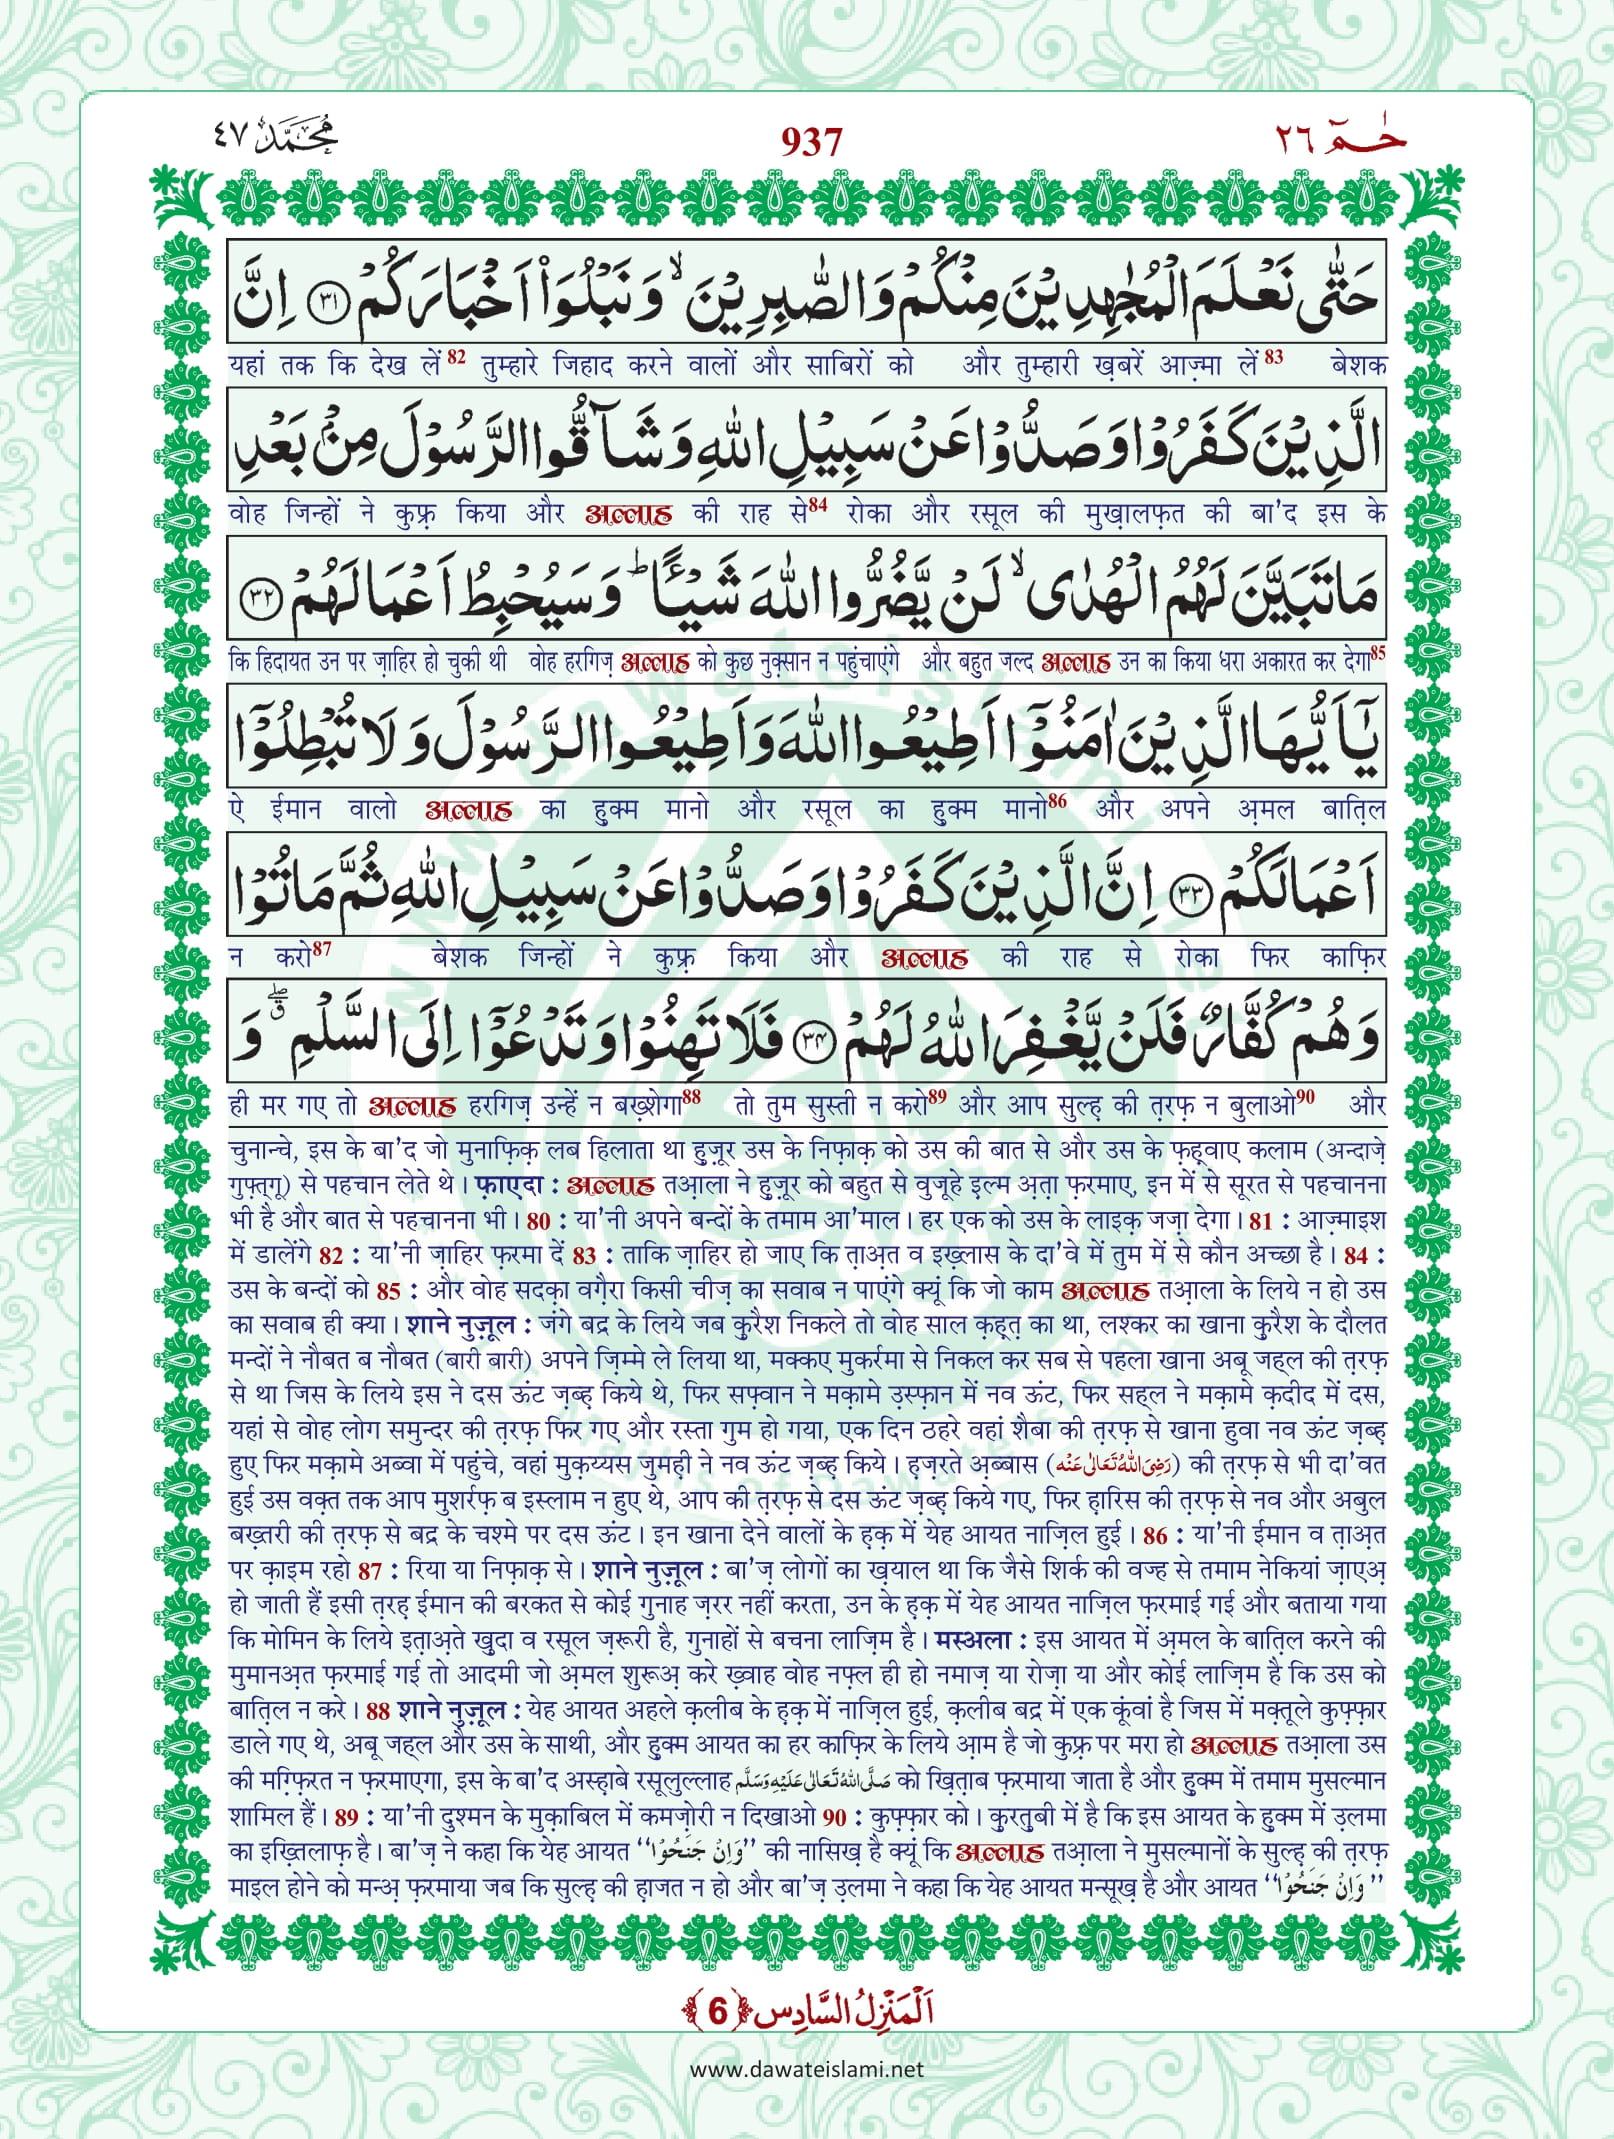 محمد ٤٧ 937 حٰمٓ ٢٦
حَتّٰى نَعْلَمَ الْمُجٰهِدِیْنَ مِنْكُمْ وَ الصّٰبِرِیْنَۙ وَ نَبْلُوَاۡ اَخْبَارَكُمْ ﴿۳۱﴾ اِنَّ
यहां तक कि देख लें82 तुम्हारे जिहाद करने वालों और साबिरों को और तुम्हारी ख़बरें आज़्मा लें83 बेशक
الَّذِیْنَ كَفَرُوْا وَ صَدُّوْا عَنْ سَبِیْلِ اللّٰهِ وَ شَآقُّوا الرَّسُوْلَ مِنْۢ بَعْدِ
वोह जिन्हों ने कुफ़्र किया और अल्लाह की राह से84 रोका और रसूल की मुख़ालफ़त की बा'द इस के
مَا تَبَیَّنَ لَهُمُ الْهُدٰىۙ لَنْ یَّضُرُّوا اللّٰهَ شَیْــٴًـاؕ وَ سَیُحْبِطُ اَعْمَالَهُمْ ﴿۳۲﴾
कि हिदायत उन पर ज़ाहिर हो चुकी थी वोह हरगिज़ अल्लाह को कुछ नुक़्सान न पहुंचाएंगे और बहुत जल्द अल्लाह उन का किया धरा अकारत कर देगा85
یٰۤاَیُّهَا الَّذِیْنَ اٰمَنُوْۤا اَطِیْعُوا اللّٰهَ وَ اَطِیْعُوا الرَّسُوْلَ وَ لَا تُبْطِلُوْۤا
ऐ ईमान वालो अल्लाह का हुक्म मानो और रसूल का हुक्म मानो86 और अपने अ़मल बात़िल
اَعْمَالَكُمْ ﴿۳۳﴾ اِنَّ الَّذِیْنَ كَفَرُوْا وَ صَدُّوْا عَنْ سَبِیْلِ اللّٰهِ ثُمَّ مَاتُوْا
न करो87 बेशक जिन्हों ने कुफ़्र किया और अल्लाह की राह से रोका फिर काफ़िर
وَ هُمْ كُفَّارٌ فَلَنْ یَّغْفِرَ اللّٰهُ لَهُمْ ﴿۳۴﴾ فَلَا تَهِنُوْا وَ تَدْعُوْۤا اِلَى السَّلْمِ ۖۗ وَ
ही मर गए तो अल्लाह हरगिज़ उन्हें न बख़्शेगा88 तो तुम सुस्ती न करो89 और आप सुल्ह़ की त़रफ़ न बुलाओ90 और
चुनान्चे, इस के बा'द जो मुनाफ़िक़ लब हिलाता था हुज़ूर उस के निफ़ाक़ को उस की बात से और उस के फ़ह़्वाए कलाम (अन्दाज़े
गुफ़्त्गू) से पहचान लेते थे। फ़ाएदा : अल्लाह तआ़ला ने हुज़ूर को बहुत से वुजूहे इल्म अ़त़ा फ़रमाए, इन में से सूरत से पहचानना
भी है और बात से पहचानना भी। 80 : या'नी अपने बन्दों के तमाम आ'माल। हर एक को उस के लाइक़ जज़ा देगा। 81 : आज़्माइश
में डालेंगे 82 : या'नी ज़ाहिर फ़रमा दें 83 : ताकि ज़ाहिर हो जाए कि त़ाअ़त व इख़्लास के दा'वे में तुम में से कौन अच्छा है। 84 :
उस के बन्दों को 85 : और वोह सदक़ा वग़ैरा किसी चीज़ का सवाब न पाएंगे क्यूं कि जो काम अल्लाह तआ़ला के लिये न हो उस
का सवाब ही क्या। शाने नुज़ूल : जंगे बद्र के लिये जब कु़रैश निकले तो वोह साल क़ह़्त़ का था, लश्कर का खाना कु़रैश के दौलत
मन्दों ने नौबत ब नौबत (बारी बारी) अपने ज़िम्मे ले लिया था, मक्कए मुकर्रमा से निकल कर सब से पहला खाना अबू जह्ल की त़रफ़
से था जिस के लिये इस ने दस ऊंट ज़ब्ह़ किये थे, फिर सफ़्वान ने मक़ामे उ़स्फ़ान में नव ऊंट, फिर सह्ल ने मक़ामे क़दीद में दस,
यहां से वोह लोग समुन्दर की त़रफ़ फिर गए और रस्ता गुम हो गया, एक दिन ठहरे वहां शैबा की त़रफ़ से खाना हुवा नव ऊंट ज़ब्ह़
हुए फिर मक़ामे अब्वा में पहुंचे, वहां मुक़य्यस जुमह़ी ने नव ऊंट ज़ब्ह़ किये। ह़ज़रते अ़ब्बास (رَضِیَ اللّٰهُ تَعَالٰی عَنْه) की त़रफ़ से भी दा'वत
हुई उस वक़्त तक आप मुशर्रफ़ ब इस्लाम न हुए थे, आप की त़रफ़ से दस ऊंट ज़ब्ह़ किये गए, फिर ह़ारिस की त़रफ़ से नव और अबुल
बख़्तरी की त़रफ़ से बद्र के चश्मे पर दस ऊंट। इन खाना देने वालों के ह़क़ में येह आयत नाज़िल हुई। 86 : या'नी ईमान व त़ाअ़त
पर क़ाइम रहो 87 : रिया या निफ़ाक़ से। शाने नुज़ूल : बा'ज़ लोगों का ख़याल था कि जैसे शिर्क की वज्ह से तमाम नेकियां ज़ाएअ़
हो जाती हैं इसी त़रह़ ईमान की बरकत से कोई गुनाह ज़रर नहीं करता, उन के ह़क़ में येह आयत नाज़िल फ़रमाई गई और बताया गया
कि मोमिन के लिये इत़ाअ़ते ख़ुदा व रसूल ज़रूरी है, गुनाहों से बचना लाज़िम है। मस्अला : इस आयत में अ़मल के बात़िल करने की
मुमानअ़त फ़रमाई गई तो आदमी जो अ़मल शुरूअ़ करे ख़्वाह वोह नफ़्ल ही हो नमाज़ या रोज़ा या और कोई लाज़िम है कि उस को
बात़िल न करे। 88 शाने नुज़ूल : येह आयत अहले क़लीब के ह़क़ में नाज़िल हुई, क़लीब बद्र में एक कूंवां है जिस में मक़्तूले कुफ़्फ़ार
डाले गए थे, अबू जह्ल और उस के साथी, और हुक्म आयत का हर काफ़िर के लिये आ़म है जो कुफ़्र पर मरा हो अल्लाह तआ़ला उस
की मग़्फ़िरत न फ़रमाएगा, इस के बा'द अस्ह़ाबे रसूलुल्लाह صَلَّی اللّٰهُ تَعَالٰی عَلَیْهِ وَسَلَّم को ख़ित़ाब फ़रमाया जाता है और हुक्म में तमाम मुसल्मान
शामिल हैं। 89 : या'नी दुश्मन के मुक़ाबिल में कमज़ोरी न दिखाओ 90 : कुफ़्फ़ार को। कु़रत़ुबी में है कि इस आयत के हुक्म में उ़लमा
का इख़्तिलाफ़ है। बा'ज़ ने कहा कि येह आयत ‘‘وَاِنْ جَنَحُوْا’’ की नासिख़ है क्यूं कि अल्लाह तआ़ला ने मुसल्मानों के सुल्ह़ की त़रफ़
माइल होने को मन्अ़ फ़रमाया जब कि सुल्ह़ की ह़ाजत न हो और बा'ज़ उ़लमा ने कहा कि येह आयत मन्सूख़ है और आयत ‘‘وَاِنْ جَنَحُوْا’’
اَلْمَنْزِلُ السَّادِس ﴿6﴾
www.dawateislami.net